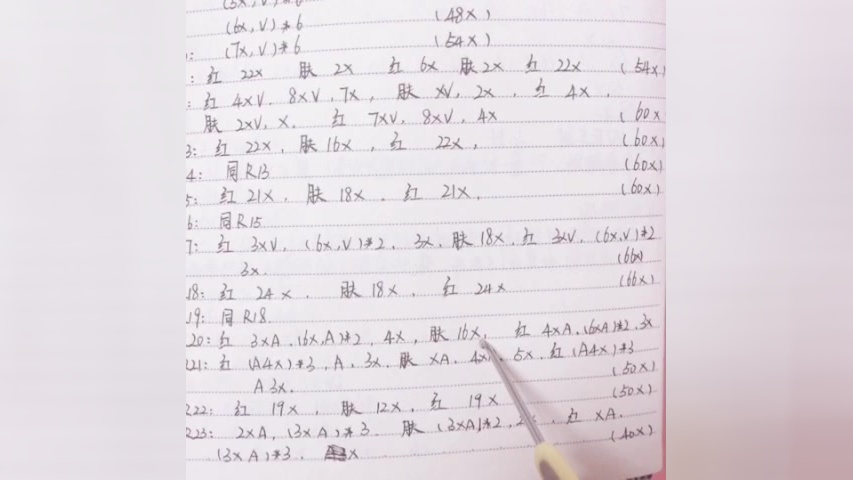 (6x,V)*6 (48x)
(7x,V)*6 (54x)
: 红 22x 肤 2x 红 6x 肤 2x 红 22x (54x)
: 红 4xV. 8xV, 7x, 肤 xV, 2x, 红 4x,
肤 2xV, x. 红 7xV, 8xV, 4x (60x
3: 红 22x, 肤 16x, 红 22x, (60x)
4: 同R13 (60x)
5: 红 21x, 肤 18x, 红 21x. (60x)
6: 同R15
7: 红 3xV, (6x,V)*2, 3x, 肤 18x, 红 3xV, (6x,V)*2
3x. (66x)
18: 红 24x, 肤 18x, 红 24x (66x)
19: 同R18.
20: 红 3xA, (6x,A)*2, 4x, 肤 16x, 红 4xA, (6xA)*2, 3x
21: 红 (A4x)*3, A, 3x, 肤 xA, 4x, 5x, 红 (A4x)*3
A 3x. (50x)
R22: 红 19x, 肤 12x, 红 19x (50x)
R23: 2xA, (3xA)*3 肤 (3xA)*2, 红 xA.
(3xA)*3, x (40x)